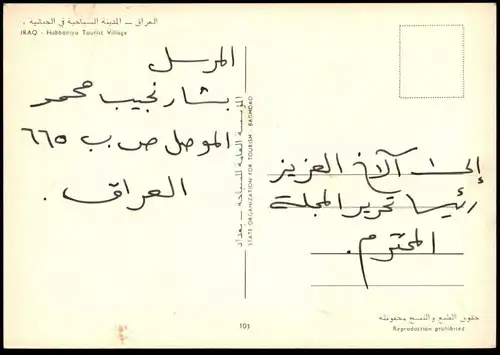 العراق – المدينة السياحية في الحبانية .
IRAQ - Habbaniya Tourist Village
المرسل
بشار نجيب محمود
الموصل ص ب ٦٦٥
العراق .
المؤسسة العامة للسياحة – بغداد
STATE ORGANIZATION FOR TOURISM - BAGHDAD
إلى الأخ العزيز
رئيس تحرير المجلة
المحترم .
103
حقوق الطبع والنسخ محفوظة
Reproduction prohibited